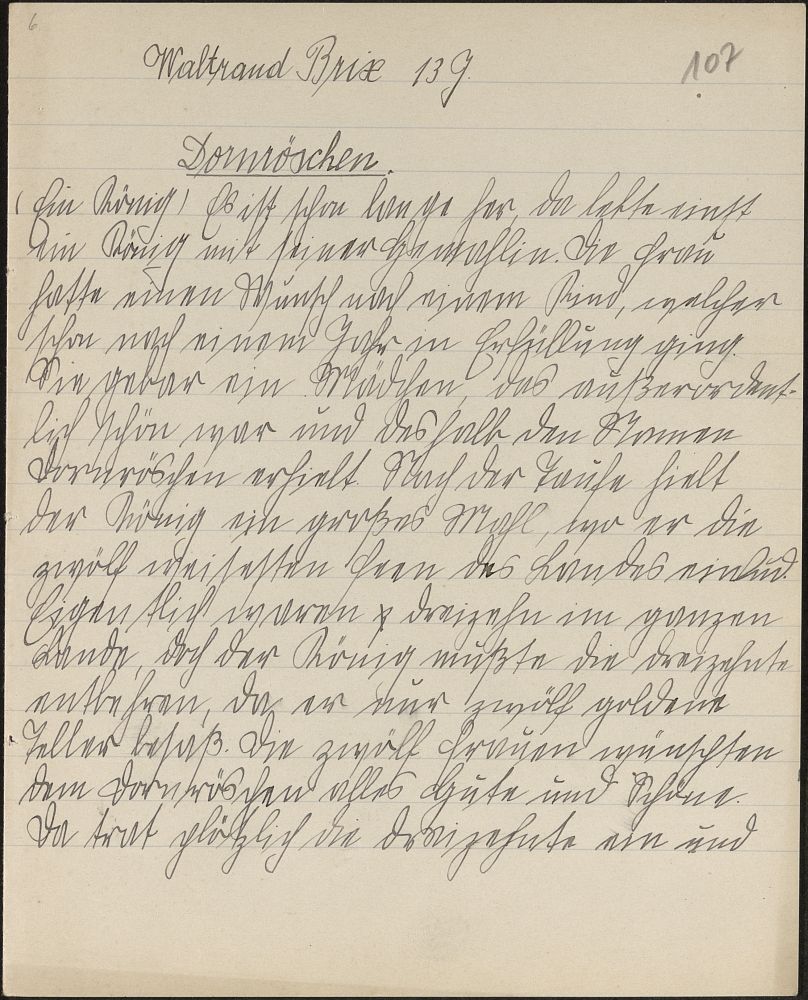 6
Waltraud Brix 13 J.
107
Dornröschen.
(Ein König) Es ist schon lange her, da lebte einst
ein König mit seiner Gemahlin. Die Frau
hatte einen Wunsch nach einem Kind, welcher
schon nach einem Jahr in Erfüllung ging.
Sie gebar ein Mädchen, das außerordent-
lich schön war und deshalb den Namen
Dornröschen erhielt. Nach der Taufe hielt
der König ein großes Mahl, wo er die
zwölf weisesten Feen des Landes einlud.
Eigentlich waren dreizehn im ganzen
Lande, doch der König mußte die dreizehnte
entbehren, da er nur zwölf goldene
Teller besaß. Die zwölf Frauen wünschten
dem Dornröschen alles Gute und Schöne.
Da trat plötzlich die dreizehnte ein und